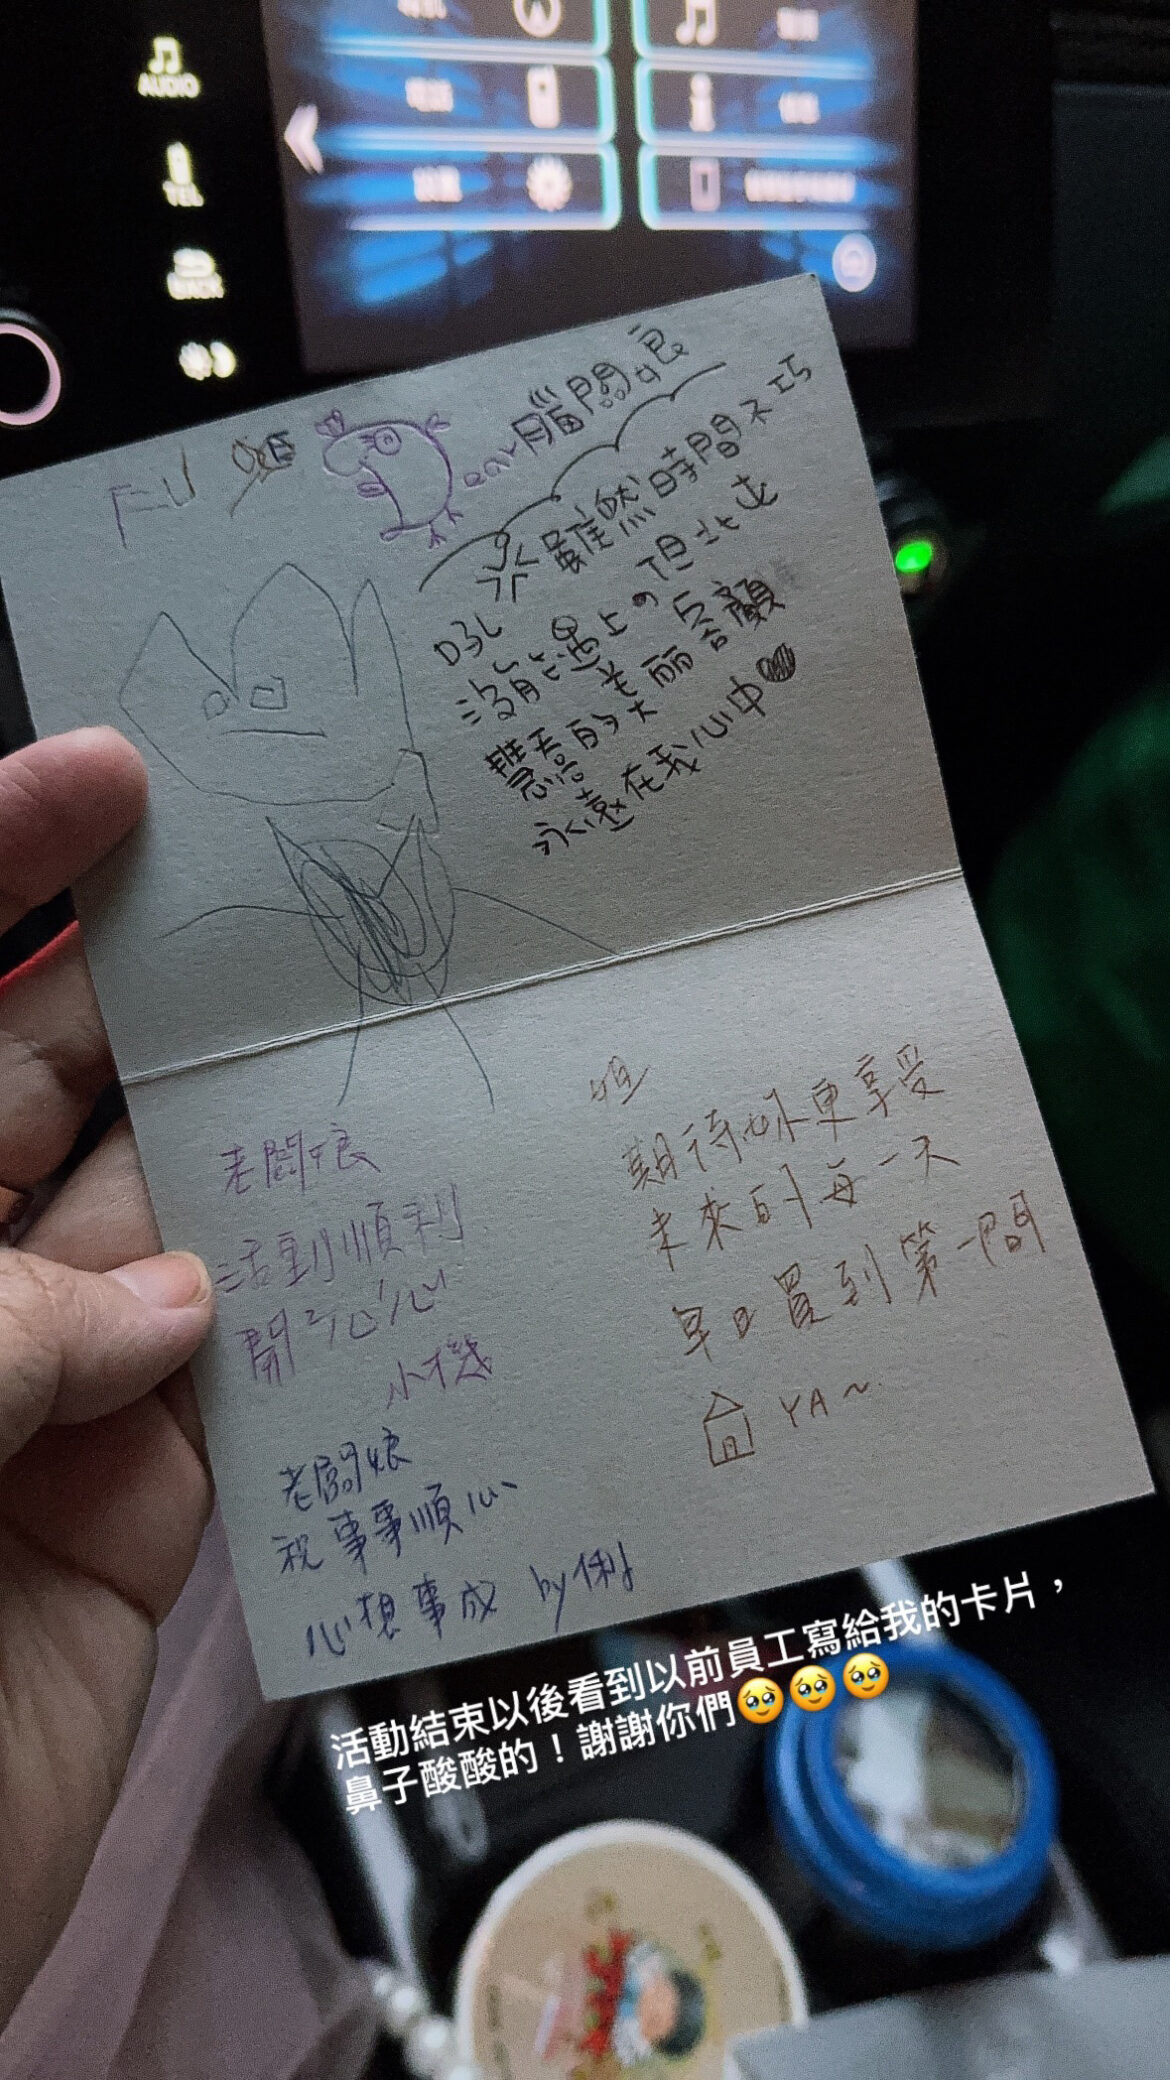 AUDIO
TEL
BACK
Dear腦闆娘
雖然時間不巧
沒能遇上の 但此生
慧君的大美丽容顏
永遠在我心中
老闆娘
活動順利
開心心
小機
老闆娘
祝事事順心
心想事成 by俐
姐
期待妳更享受
未來的每一天
早日買到第一間
YA~
活動結束以後看到以前員工寫給我的卡片，
鼻子酸酸的！謝謝你們🥹🥹🥹